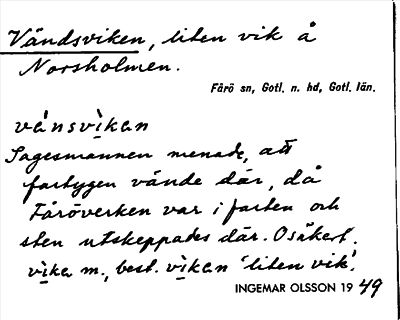 Vändsviken, liten vik å
Norsholmen.
Fårö sn, Gotl. n. hd, Gotl. län.
vánsvìkan
Sagesmannen menade, att
fartygen vände där, då
Fåröverken var i farten och
sten utskeppades där. Osäkert.
vika m., best. vìkan 'liten vik'.
INGEMAR OLSSON 19 49